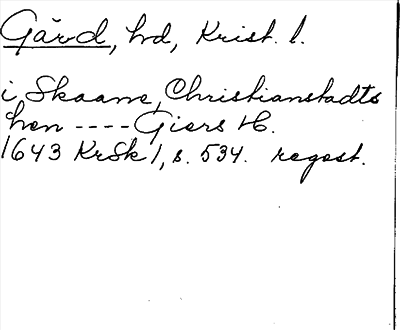 Gärd, hd, Krist. l.
i Skaane, Christianstadts
Len ---- Giers H.
1643 KrSk 1, s. 534. regest.